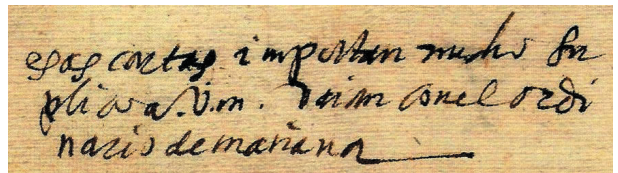 esas cartas importan mucho su
plico a. V.m. vaian con el ordi
nario de mañana